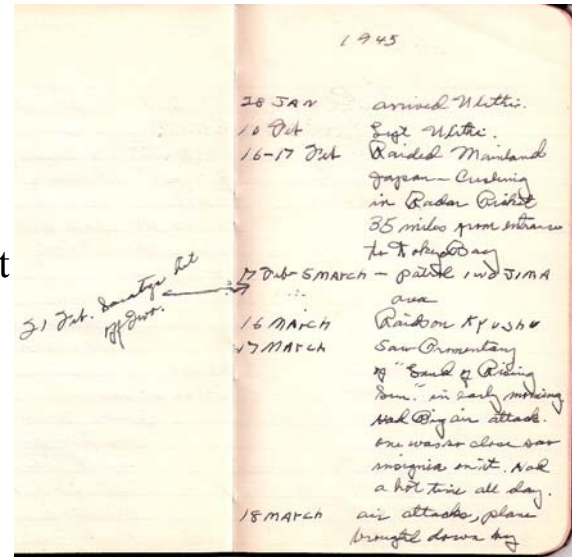 t
1945
28 JAN arrived Ulithi.
10 Feb Left Ulithi.
16-17 Feb Raided Mainland
Japan - Cruising
in Radar Picket
35 miles from entrance
to Tokyo Bay
17 Feb-5 MARCH - patrol IWO JIMA
area
21 Feb. Saratoga hit
off Iwo.
16 MARCH Raids on KYUSHU
17 MARCH Saw Promentary
of "Land of Rising
Sun." in early morning
Had Big air attack.
one was so close saw
insignia on it. Had
a hot time all day.
18 MARCH air attacks, plane
brought down by